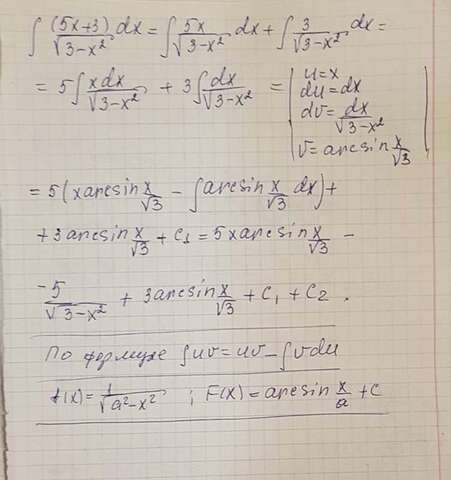 ∫ (5x+3)dx/√(3-x²) = ∫ 5x/√(3-x²) dx + ∫ 3/√(3-x²) dx =
= 5∫ xdx/√(3-x²) + 3∫ dx/√(3-x²) = | u=x
du=dx
dv= dx/√(3-x²)
v= arcsin x/√3 |
= 5(x arcsin x/√3 - ∫ arcsin x/√3 dx) +
+ 3 arcsin x/√3 + C₁ = 5x arcsin x/√3 -
-5/√(3-x²) + 3 arcsin x/√3 + C₁ + C₂ .
По формуле ∫uv = uv - ∫vdu
f(x) = 1/√(a²-x²) ; F(x) = arcsin x/a + C